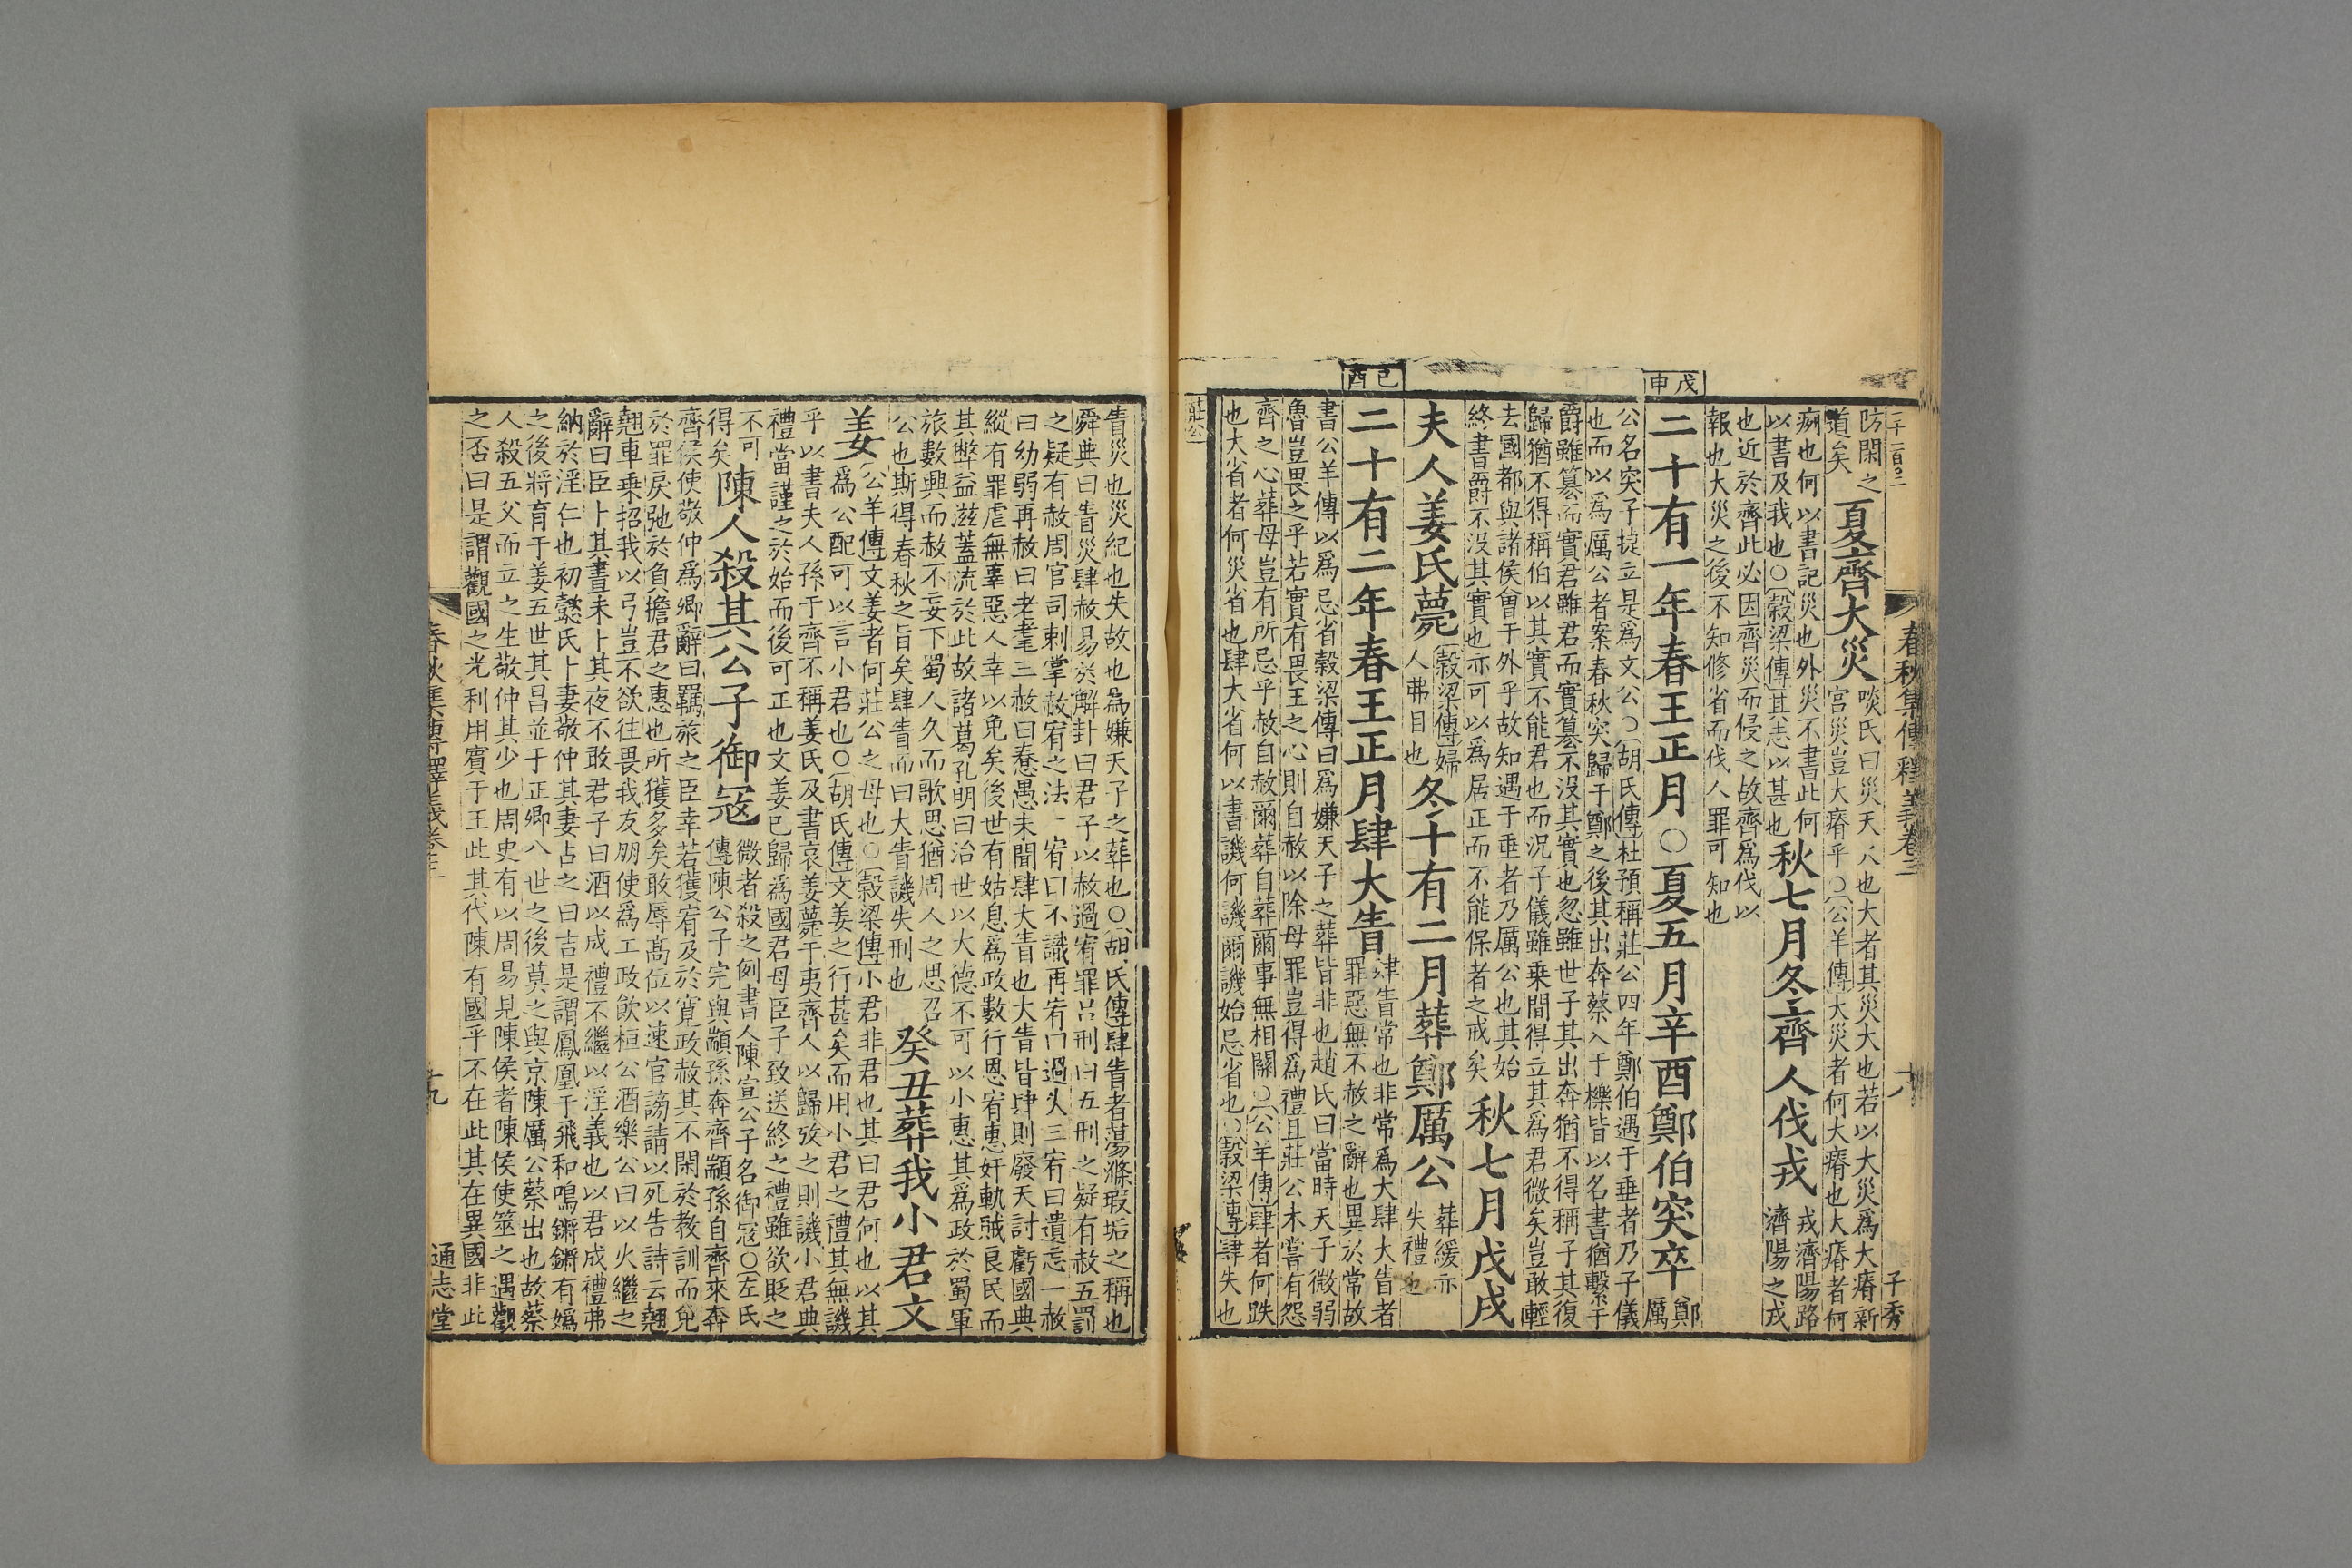 春秋集傳釋義卷三
子秀
防閑之
道矣
夏齊大災
啖氏曰災天火也大者其災大也若以大災爲大瘠新
宮災豈大瘠乎○公羊傳大災者何大瘠也大瘠者何
㾐也何以書記災也外災不書此何
以書及我也○穀梁傳其志以甚也
秋七月冬齊人伐戎
戎濟陽路
濟陽之戎
也近於齊此必因齊災而侵之故齊爲伐以
報也大災之後不知修省而伐人罪可知也
戊申
二十有一年春王正月○夏五月辛酉鄭伯突卒
鄭
厲
公名突子㨗立是爲文公○胡氏傳杜預稱莊公四年鄭伯遇于垂者乃子儀
也而以爲厲公者案春秋突歸于鄭之後其出奔蔡入于櫟皆以名書猶繫于
爵雖篡而實君雖君而實篡不没其實也忽雖世子其出奔猶不得稱子其復
歸猶不得稱伯以其實不能君也而況子儀雖乗間得立其爲君微矣豈敢輕
去國都與諸侯會于外乎故知遇于垂者乃厲公也其始
終書爵不没其實也亦可以爲居正而不能保者之戒矣
秋七月戊戌
夫人姜氏薨
穀梁傳婦
人弗目也
冬十有二月葬鄭厲公
葬緩亦
失禮也
己酉
二十有二年春王正月肆大眚
肆眚常也非常爲大肆大眚者
罪惡無不赦之辭也異於常故
書公羊傳以爲忌省穀梁傳曰爲嫌天子之葬皆非也趙氏曰當時天子微弱
魯豈畏之乎若實有畏王之心則自赦以除母罪豈得爲禮且莊公未嘗有怨
齊之心葬母豈有所忌乎赦自赦爾葬自葬爾事無相關○公羊傳肆者何跌
也大省者何災省也肆大省何以書譏何譏爾譏始忌省也○穀梁傳肆失也
莊公
眚災也災紀也失故也爲嫌天子之葬也○胡氏傳肆眚者蕩滌瑕垢之稱也
舜典曰眚災肆赦易於解卦曰君子以赦過宥罪呂刑曰五刑之疑有赦五罰
之疑有赦周官司刺掌赦宥之法一宥曰不識再宥曰過失三宥曰遺忘一赦
曰幼弱再赦曰老耄三赦曰憃愚未聞肆大眚也大眚皆肆則廢天討虧國典
縱有罪虐無辜惡人幸以免矣後世有姑息爲政數行恩宥惠奸軌賊良民而
其弊益滋蓋流於此故諸葛孔明曰治世以大德不可以小惠其爲政於蜀軍
旅數興而赦不妄下蜀人久而歌思猶周人之思召
公也斯得春秋之旨矣肆眚而曰大眚譏失刑也
癸丑葬我小君文
姜
公羊傳文姜者何莊公之母也○穀梁傳小君非君也其曰君何也以其
爲公配可以言小君也○胡氏傳文姜之行甚矣而用小君之禮其無譏
乎以書夫人孫于齊不稱姜氏及書哀姜薨于夷齊人以歸攷之則譏小君典
禮當謹之於始而後可正也文姜已歸爲國君母臣子致送終之禮雖欲貶之
不可
得矣
陳人殺其公子御寇
微者殺之例書人陳宣公子名御寇○左氏
傳陳公子完與顓孫奔齊顓孫自齊來奔
齊侯使敬仲爲卿辭曰羈旅之臣幸若獲宥及於寛政赦其不閑於教訓而免
於罪戾弛於負擔君之惠也所獲多矣敢辱髙位以速官謗請以死告詩云翹
翹車乗招我以弓豈不欲往畏我友朋使爲工政飲桓公酒樂公曰以火繼之
辭曰臣卜其晝未卜其夜不敢君子曰酒以成禮不繼以淫義也以君成禮弗
納於淫仁也初懿氏卜妻敬仲其妻占之曰吉是謂鳳凰于飛和鳴鏘鏘有嬀
之後將育于姜五世其昌並于正卿八世之後莫之與京陳厲公蔡出也故蔡
人殺五父而立之生敬仲其少也周史有以周易見陳侯者陳侯使筮之遇觀
之否曰是謂觀國之光利用賓于王此其代陳有國乎不在此其在異國非此
春秋集傳釋義卷三
十九
通志堂